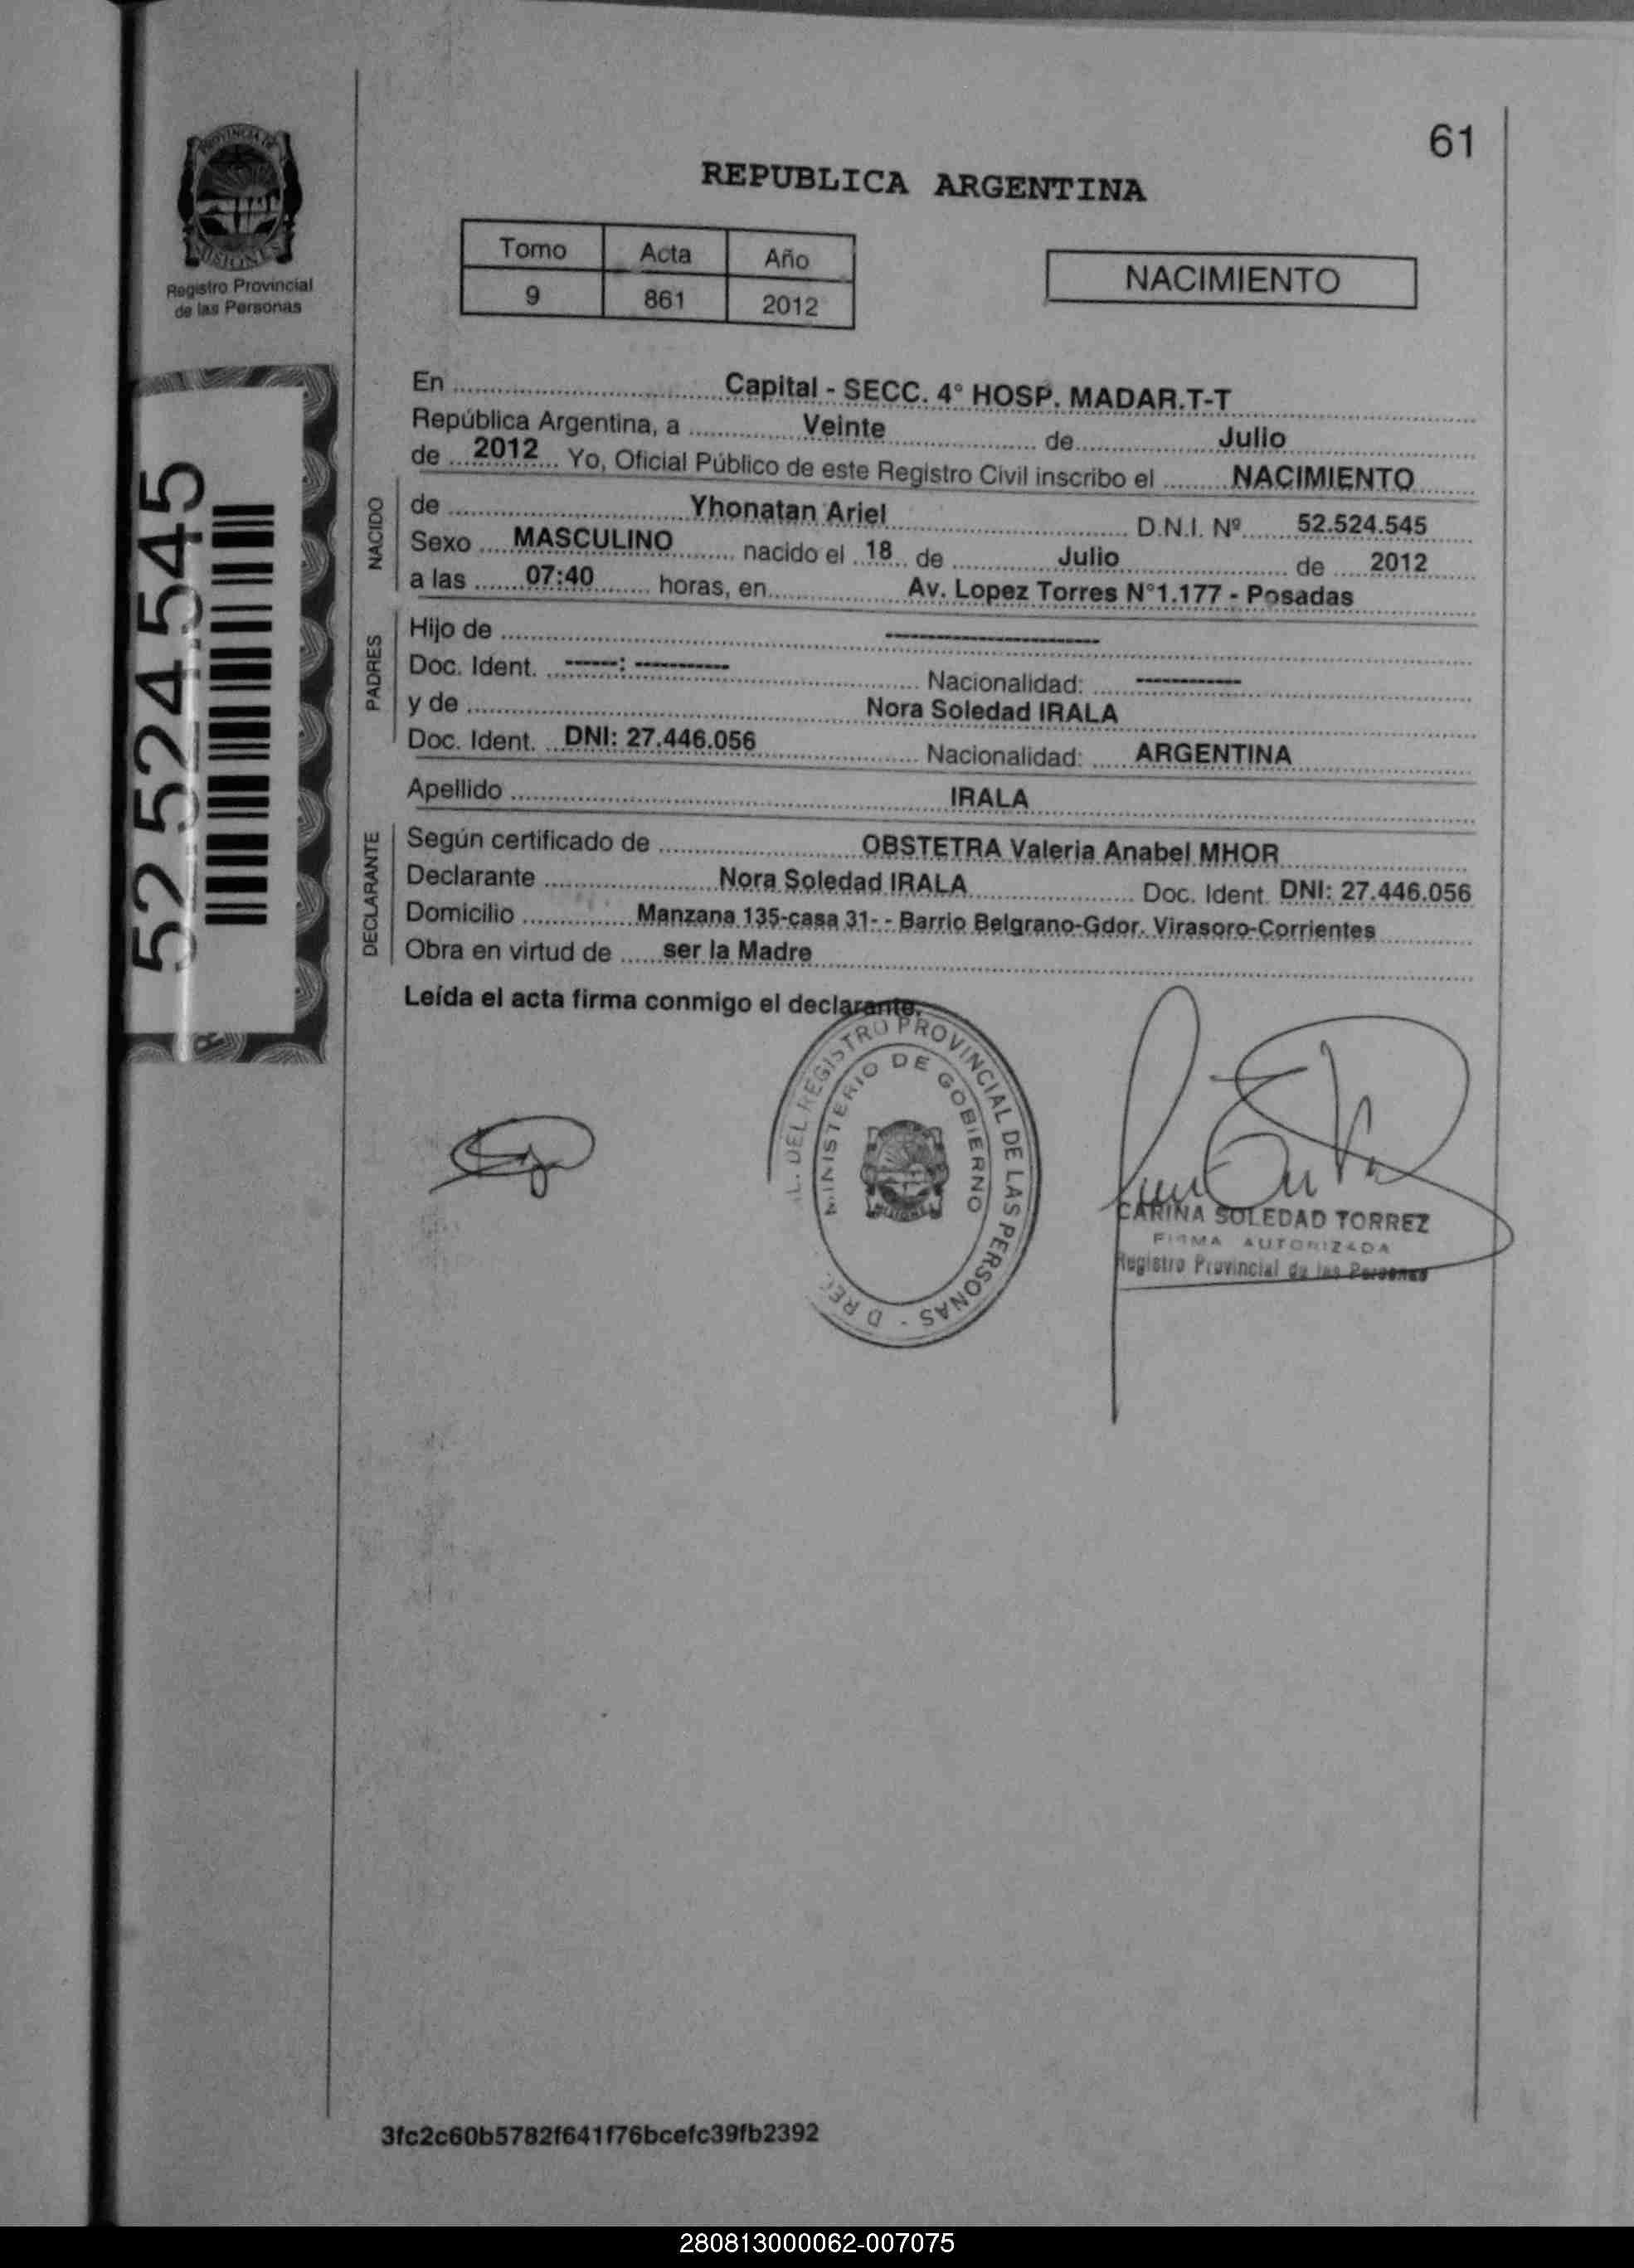 61
PROVINCIA DE
MISIONES
Registro Provincial
de las Personas
REPUBLICA ARGENTINA
Tomo Acta Año
9 861 2012
NACIMIENTO
52.524.545
En Capital - SECC. 4° HOSP. MADAR.T-T
República Argentina, a Veinte de Julio
de 2012 Yo, Oficial Público de este Registro Civil inscribo el NACIMIENTO
NACIDO
de Yhonatan Ariel D.N.I. Nº 52.524.545
Sexo MASCULINO nacido el 18 de Julio de 2012
a las 07:40 horas, en Av. Lopez Torres N°1.177 - Posadas
PADRES
Hijo de ---------------------
Doc. Ident. ------: ----------- Nacionalidad: ------------
y de Nora Soledad IRALA
Doc. Ident. DNI: 27.446.056 Nacionalidad: ARGENTINA
Apellido IRALA
DECLARANTE
Según certificado de OBSTETRA Valeria Anabel MHOR
Declarante Nora Soledad IRALA Doc. Ident. DNI: 27.446.056
Domicilio Manzana 135-casa 31- - Barrio Belgrano-Gdor. Virasoro-Corrientes
Obra en virtud de ser la Madre
Leída el acta firma conmigo el declarante.
DEL REGISTRO PROVINCIAL DE LAS PERSONAS -
MINISTERIO DE GOBIERNO
CARINA SOLEDAD TORREZ
FIRMA AUTORIZADA
Registro Provincial de las Personas
3fc2c60b5782f641f76bcefc39fb2392
280813000062-007075